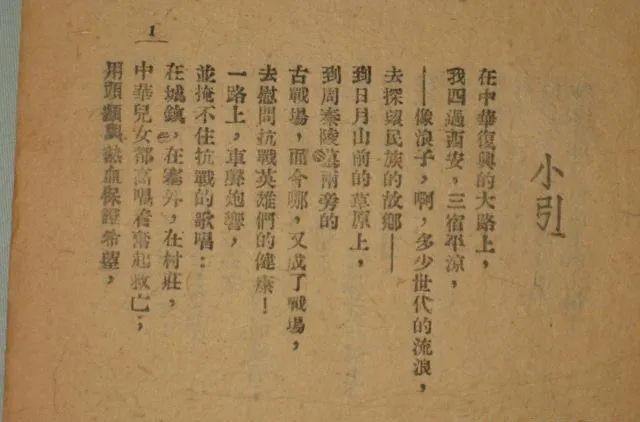 小引
在中華復興的大路上，
我四過西安，三宿平涼，
——像浪子，啊，多少世代的流浪，
去探望民族的故鄉——
到日月山前的草原上，
到周秦陵墓兩旁的
古戰場，而今哪，又成了戰場，
去慰問抗戰英雄們的健康！
一路上，車聲炮響，
並掩不住抗戰的歌唱：
在城鎮，在塞外，在村莊，
中華兒女都高唱着奮起救亡，
用頭顱與熱血保證希望，
1